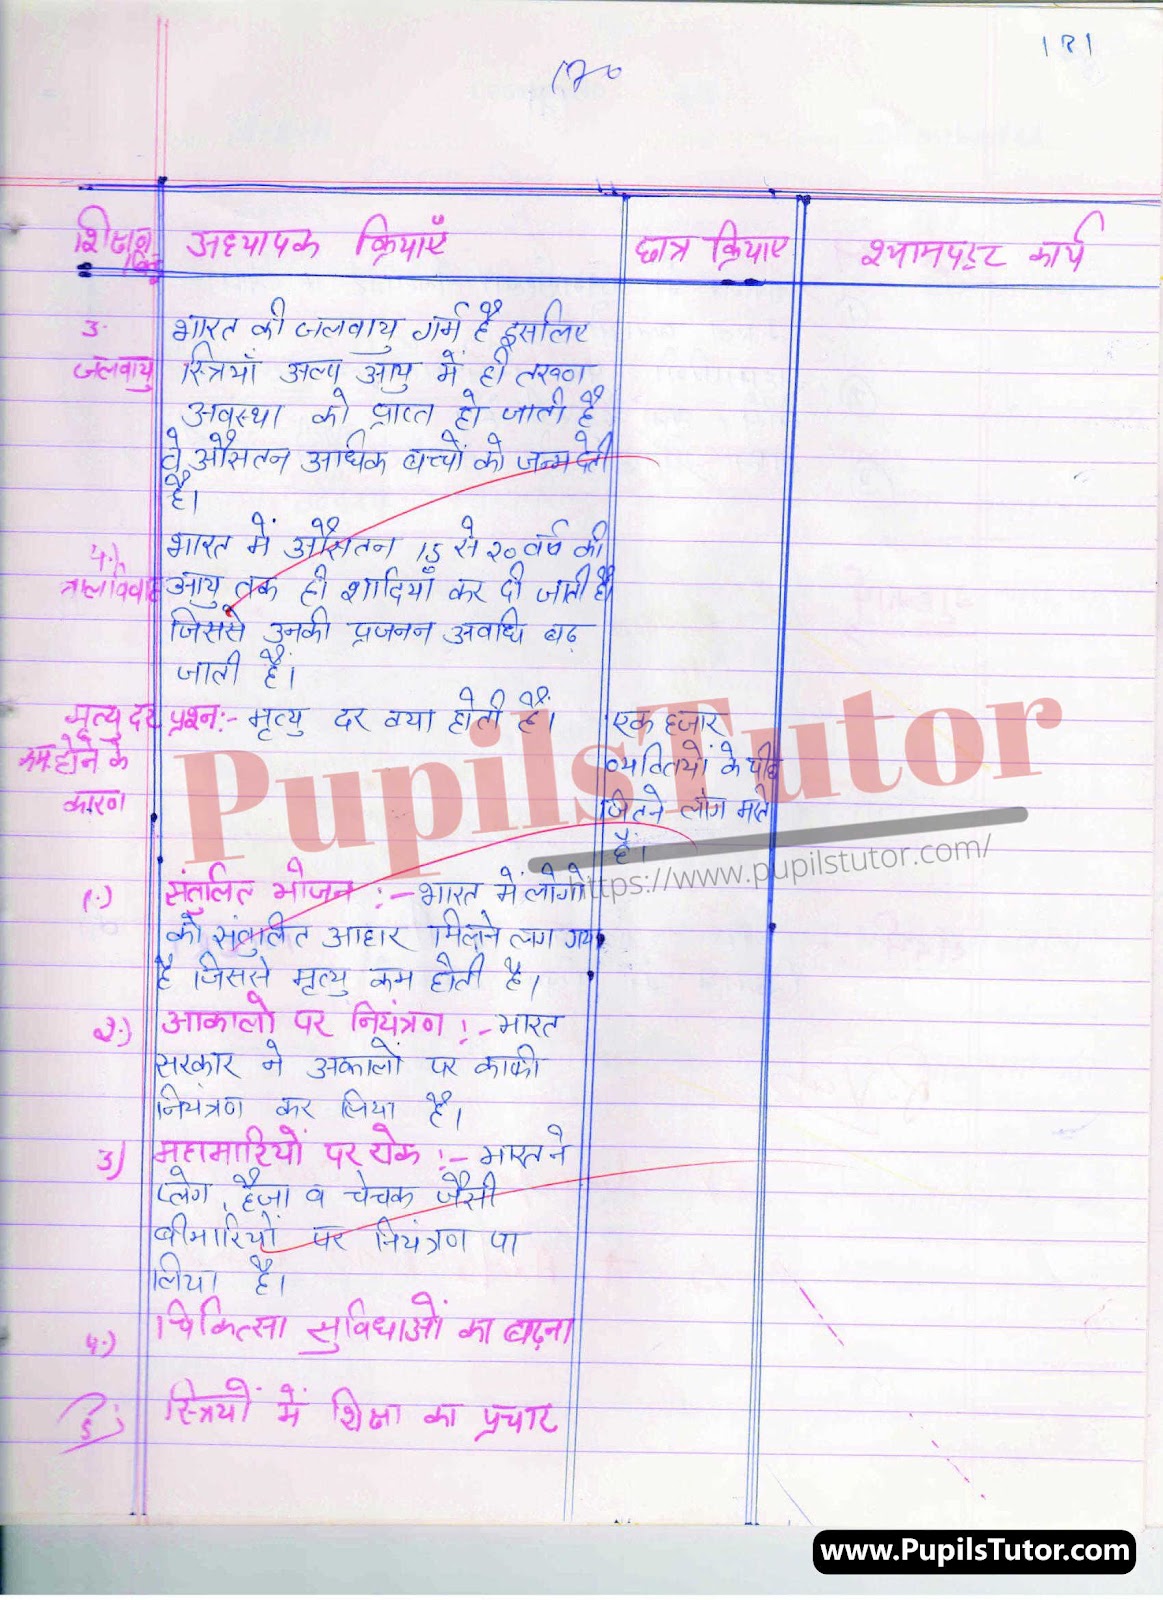 181
120
शिक्षण बिन्दु अध्यापक क्रियाएँ छात्र क्रियाए श्यामपट्ट कार्य
3. भारत की जलवायु गर्म है इसलिए
जलवायु स्त्रियाँ अल्प आयु में ही तरूण
अवस्था को प्राप्त हो जाती है
वे औसतन अधिक बच्चों को जन्म देती
है।
4.) भारत में औसतन 15 से २० वर्ष की
बालविवाह आयु तक ही शादियाँ कर दी जाती है।
जिससे उनकी प्रजनन अवधि बढ़
जाती हैं।
मृत्यु दर प्रश्न:- मृत्यु दर क्या होती हैं। एक हजार
कम होने के व्यक्तियों के पीछे
कारण जितने लोग मरते
हैं।
PupilsTutor
https://www.pupilstutor.com/
1.) संतुलित भोजन :- भारत में लोगो
को संतुलित आहार मिलने लग गया
है जिससे मृत्यु कम होती है।
२.) आकालो पर नियंत्रण :- भारत
सरकार ने अकालों पर काफी
नियंत्रण कर लिया है।
3) महामारियों पर रोक :- भारत ने
प्लेग, हैजा व चेचक जैसी
बीमारियों पर नियंत्रण पा
लिया है।
4.) चिकित्सा सुविधाओं का बढ़ना
5. स्त्रियों में शिक्षा का प्रचार
www.PupilsTutor.com